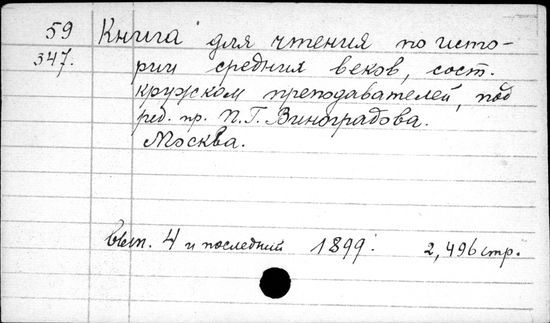 59 Книга для чтения по исто-
347. рии средних веков, сост.
кружком преподавателей, под
ред. пр. П. Г. Виноградова.
Москва.
вып. 4 и последний 1899. 2, 496 стр.